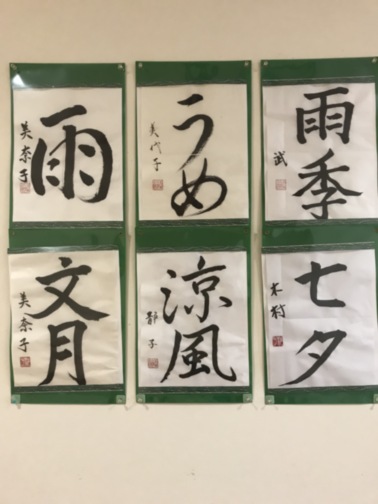 雨季
武
うめ
美代子
雨
美奈子
七夕
木村
涼風
静子
文月
美奈子